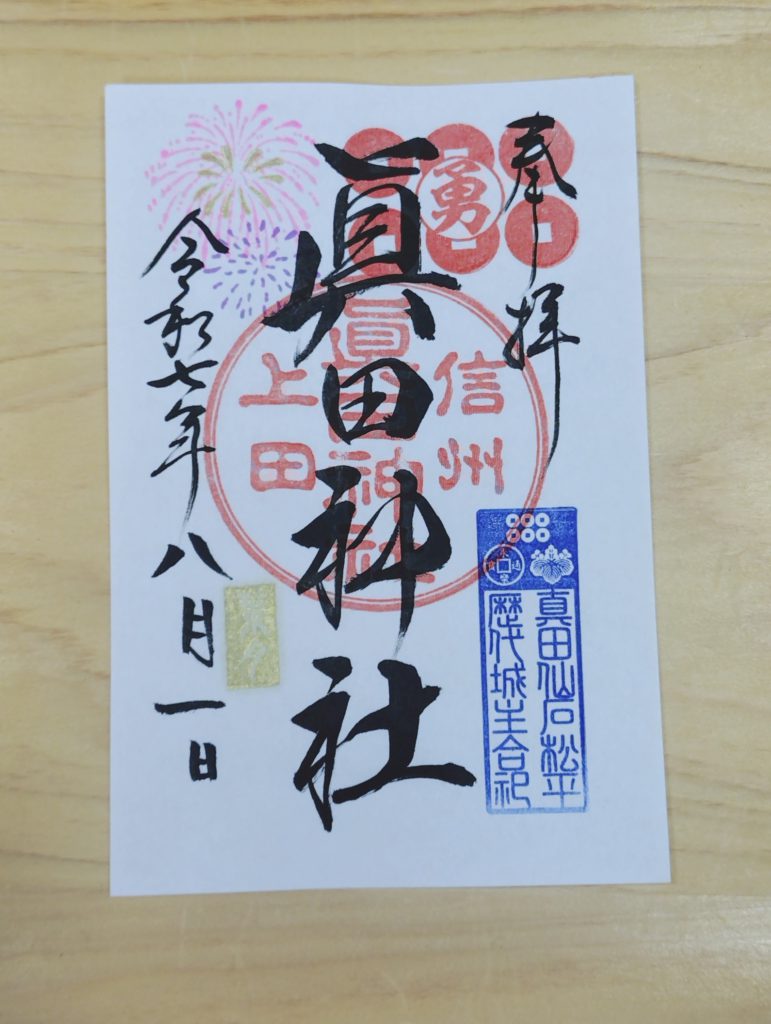 奉拝
勇
眞田神社
信州
眞田神社
上田
真田仙石松平
歴代城主合祀
令和七年八月一日